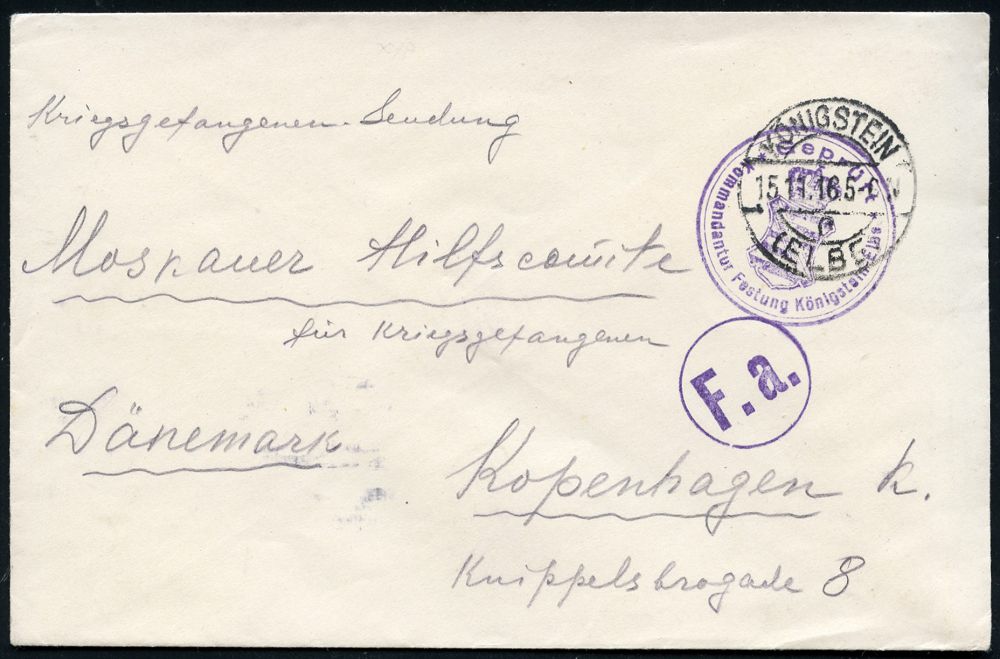 Kriegsgefangenen-Sendung
KÖNIGSTEIN
15.11.16.5-6 N
1 a
(ELBE)
* Geprüft *
Kommandantur Festung Königstein Elbe
Moskauer Hilfscomite
für Kriegsgefangenen
F. a.
Dänemark
Kopenhagen K.
Knippelsbrogade 8